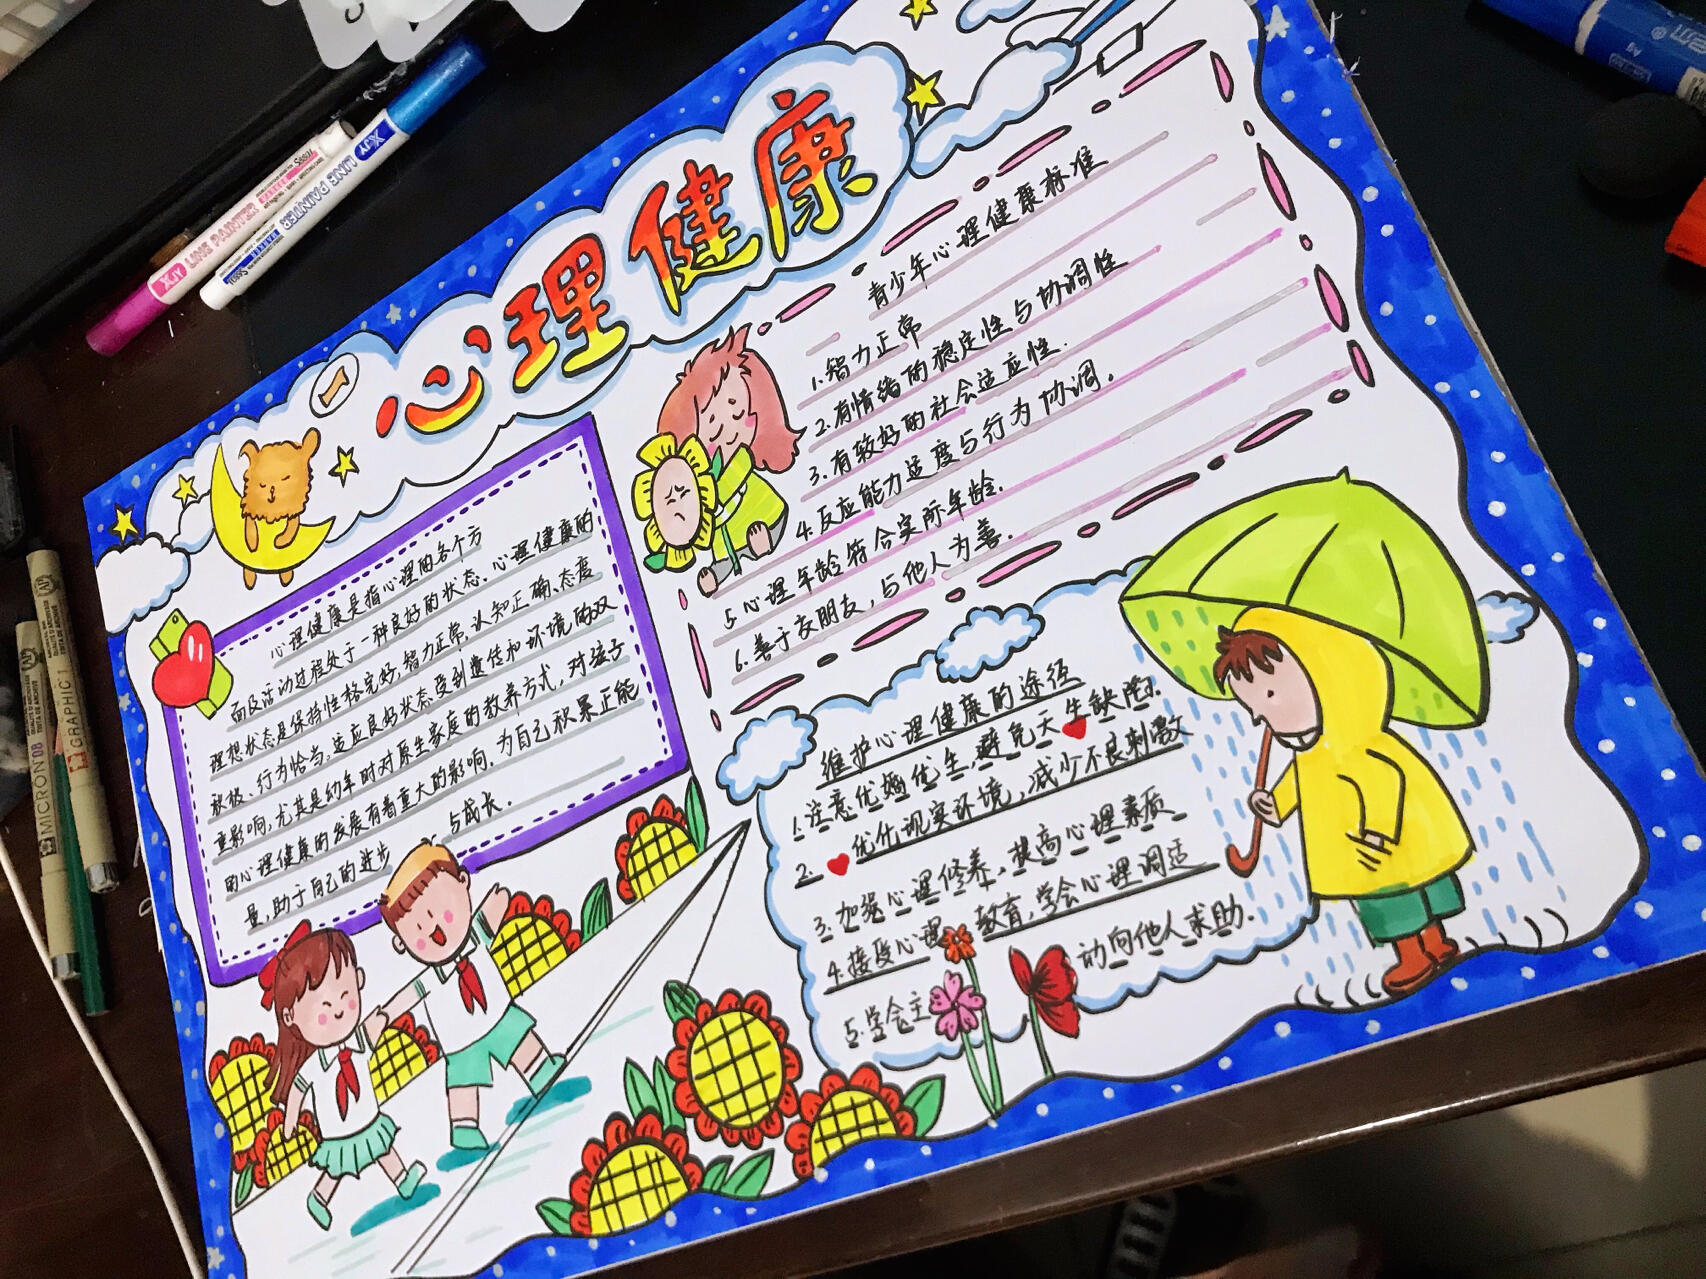 心理健康
心理健康是指心理的各个方
面及活动过程处于一种良好的状态。心理健康的
理想状态是保持性格完好,智力正常,认知正确、态度
积极、行为恰当,适应良好状态受到遗传和环境的双
重影响,尤其是幼年时对原生家庭的教养方式,对孩子
的心理健康的发展有着重大的影响,为自己积累正能
量,助于自己的进步与成长.
青少年心理健康标准
1.智力正常
2.有情绪的稳定性与协调性
3.有较好的社会适应性.
4.反应能力适度与行为协调.
5.心理年龄符合实际年龄.
6.善于交朋友,与他人为善.
维护心理健康的途径
1.注意优婚优生,避免天生缺陷.
2.优化现实环境,减少不良刺激
3.加强心理修养,提高心理素质
4.接受心理教育,学会心理调适
5.学会主动向他人求助.
XJY LINE PAINTER
XJY LINE PAINTER
MICRON 08
GRAPHIC 1